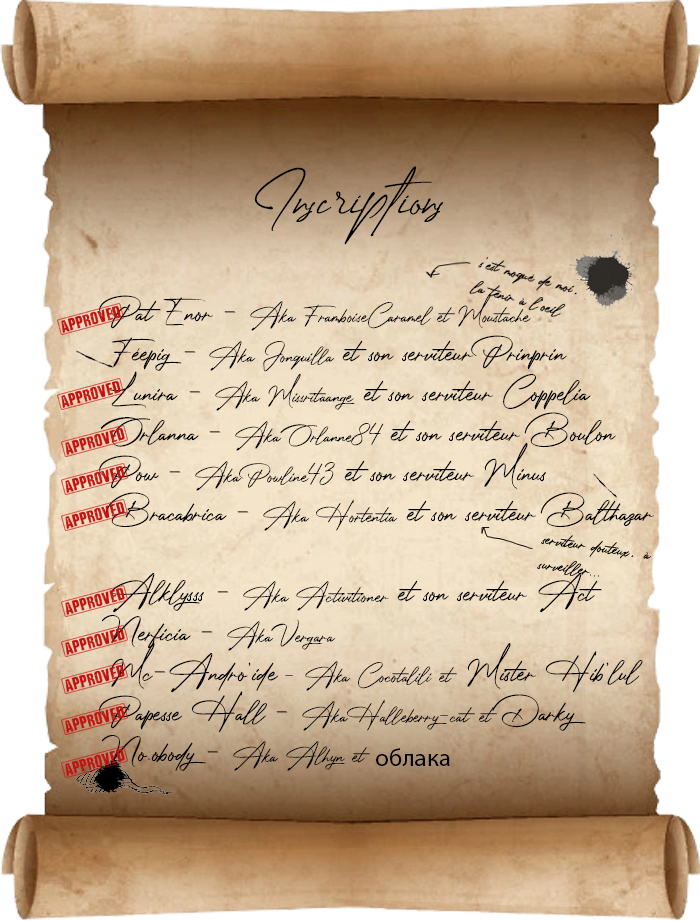 Inscriptions
s'est moqué de moi.
la tenir à l'oeil
APPROVED Pat Enor - Aka FramboiseCaramel et Moustache
Féepig - Aka Jonquilla et son serviteur Prinprin
APPROVED Lunira - Aka Missritaange et son serviteur Coppelia
APPROVED Orlanna - Aka Orlanne84 et son serviteur Boulon
APPROVED Pow - Aka Pouline43 et son serviteur Minus
APPROVED Bracabrica - Aka Hortentia et son serviteur Balthazar
serviteur douteux. à
surveiller...
APPROVED Alklysss - Aka Activitioner et son serviteur Act
APPROVED Nerficia - Aka Vergara
APPROVED Mc-Andro'ide - Aka Cocotalili et Mister Hib'lul
APPROVED Papesse Hall - Aka Halleberry-cat et Darky
APPROVED No-obody - Aka Alhyn et облака